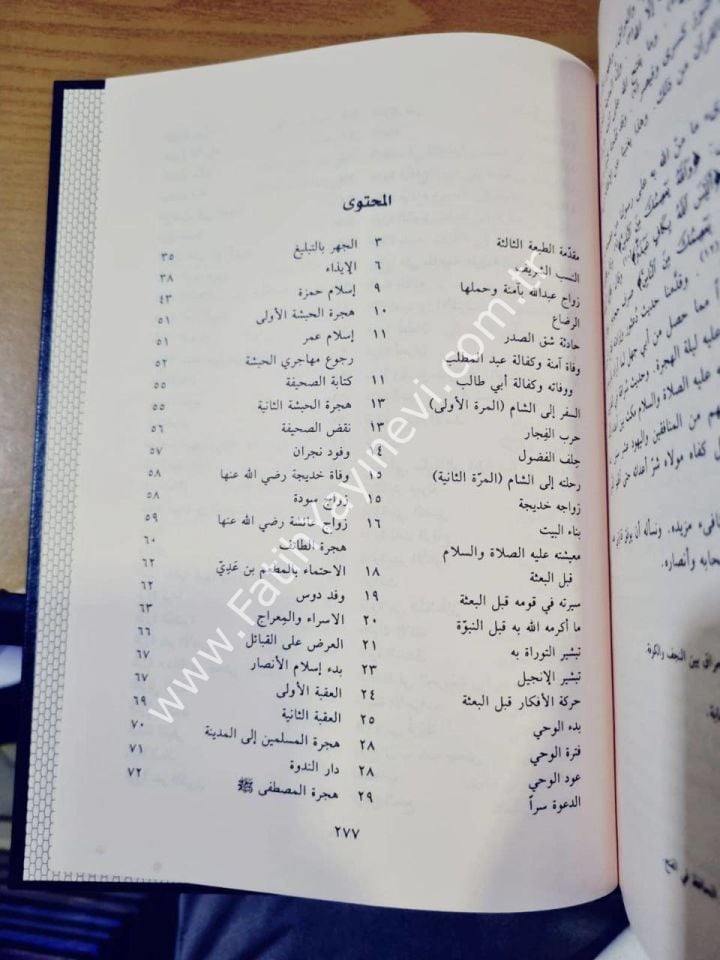 المحتوى
مقدّمة الطبعة الثالثة ٣
النسب الشريف ٦
زواج عبدالله بآمنة وحملها ٩
الرضاع ١٠
حادثة شق الصدر ١١
وفاة آمنة وكفالة عبد المطلب
ووفاته وكفالة أبي طالب ١١
السفر إلى الشام (المرة الأولى) ١٣
حرب الفِجار ١٣
حِلف الفضول ١٤
رحلته إلى الشام (المرّة الثانية) ١٥
زواجه خديجة ١٥
بناء البيت ١٦
معيشته عليه الصلاة والسلام
قبل البعثة ١٨
سيرته في قومه قبل البعثة ١٩
ما أكرمه الله به قبل النبوّة ٢٠
تبشير التوراة به ٢١
تبشير الإنجيل ٢٣
حركة الأفكار قبل البعثة ٢٤
بدء الوحي ٢٥
فترة الوحي ٢٨
عود الوحي ٢٨
الدعوة سراً ٢٩
الجهر بالتبليغ ٣٥
الإيذاء ٣٨
إسلام حمزة ٤٣
هجرة الحبشة الأولى ٥١
إسلام عمر ٥١
رجوع مهاجري الحبشة ٥٢
كتابة الصحيفة ٥٥
هجرة الحبشة الثانية ٥٥
نقض الصحيفة ٥٦
وفود نجران ٥٧
وفاة خديجة رضي الله عنها ٥٨
زواج سودة ٥٨
زواج عائشة رضي الله عنها ٥٩
هجرة الطائف ٦٠
الاحتماء بالمطعم بن عَدِيّ ٦٢
وفد دوس ٦٢
الاسراء والمِعراج ٦٣
العرض على القبائل ٦٦
بدء إسلام الأنصار ٦٧
العقبة الأولى ٦٧
العقبة الثانية ٦٩
هجرة المسلمين إلى المدينة ٧٠
دار الندوة ٧١
هجرة المصطفى ﷺ ٧٢
٢٧٧
www.Fatihyayinevi.com.tr